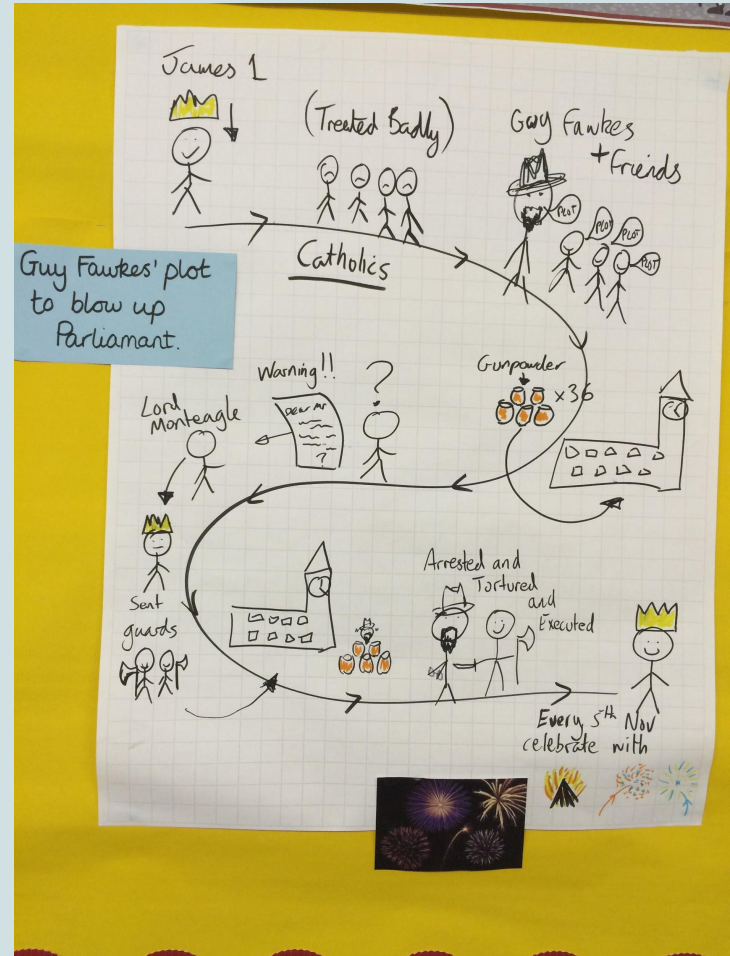 James 1
(Treated Badly)
Guy Fawkes
+ Friends
PLOT
PLOT
PLOT
PLOT
Catholics
Guy Fawkes' plot
to blow up
Parliamant.
Gunpowder
x36
Warning!!
?
Dear Mr
?
Lord
Monteagle
Sent
guards
Arrested and
Tortured
and
Executed
Every 5th Nov
celebrate with